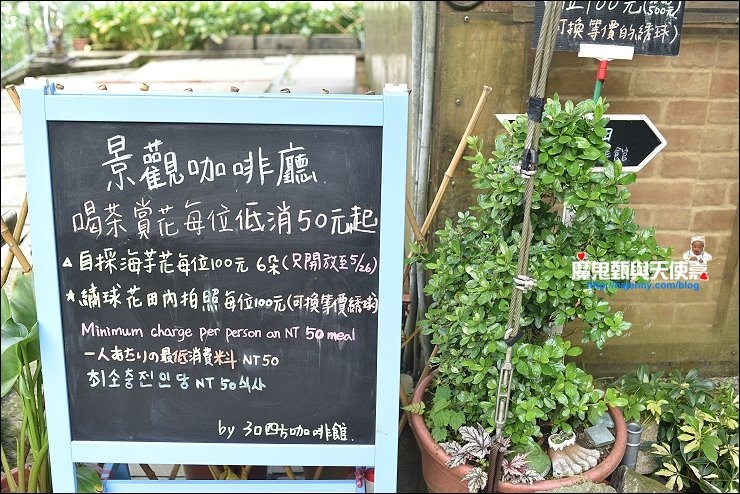 景觀咖啡廳
喝茶賞花每位低消50元起
▲自採海芋花每位100元 6朵(只開放至5/26)
★繡球花田內拍照每位100元(可換等價綉球)
Minimum charge per person an NT 50 meal
一人あたりの最低消費料斗 NT50
최소충전인당 NT 50식사
by 30四方咖啡館
位100元(500元)
可換等價的綉球)
田
館
魔鬼甄與天使嘉